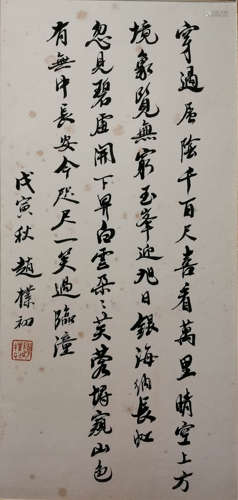 穿過層陰千百尺喜看萬里晴空上方
境象覽無窮玉峯迎旭日銀海納長虹
忽見碧虛開下界白雲朵〻芙蓉
有無中長安今咫尺一笑過臨潼
戊寅秋 趙樸初